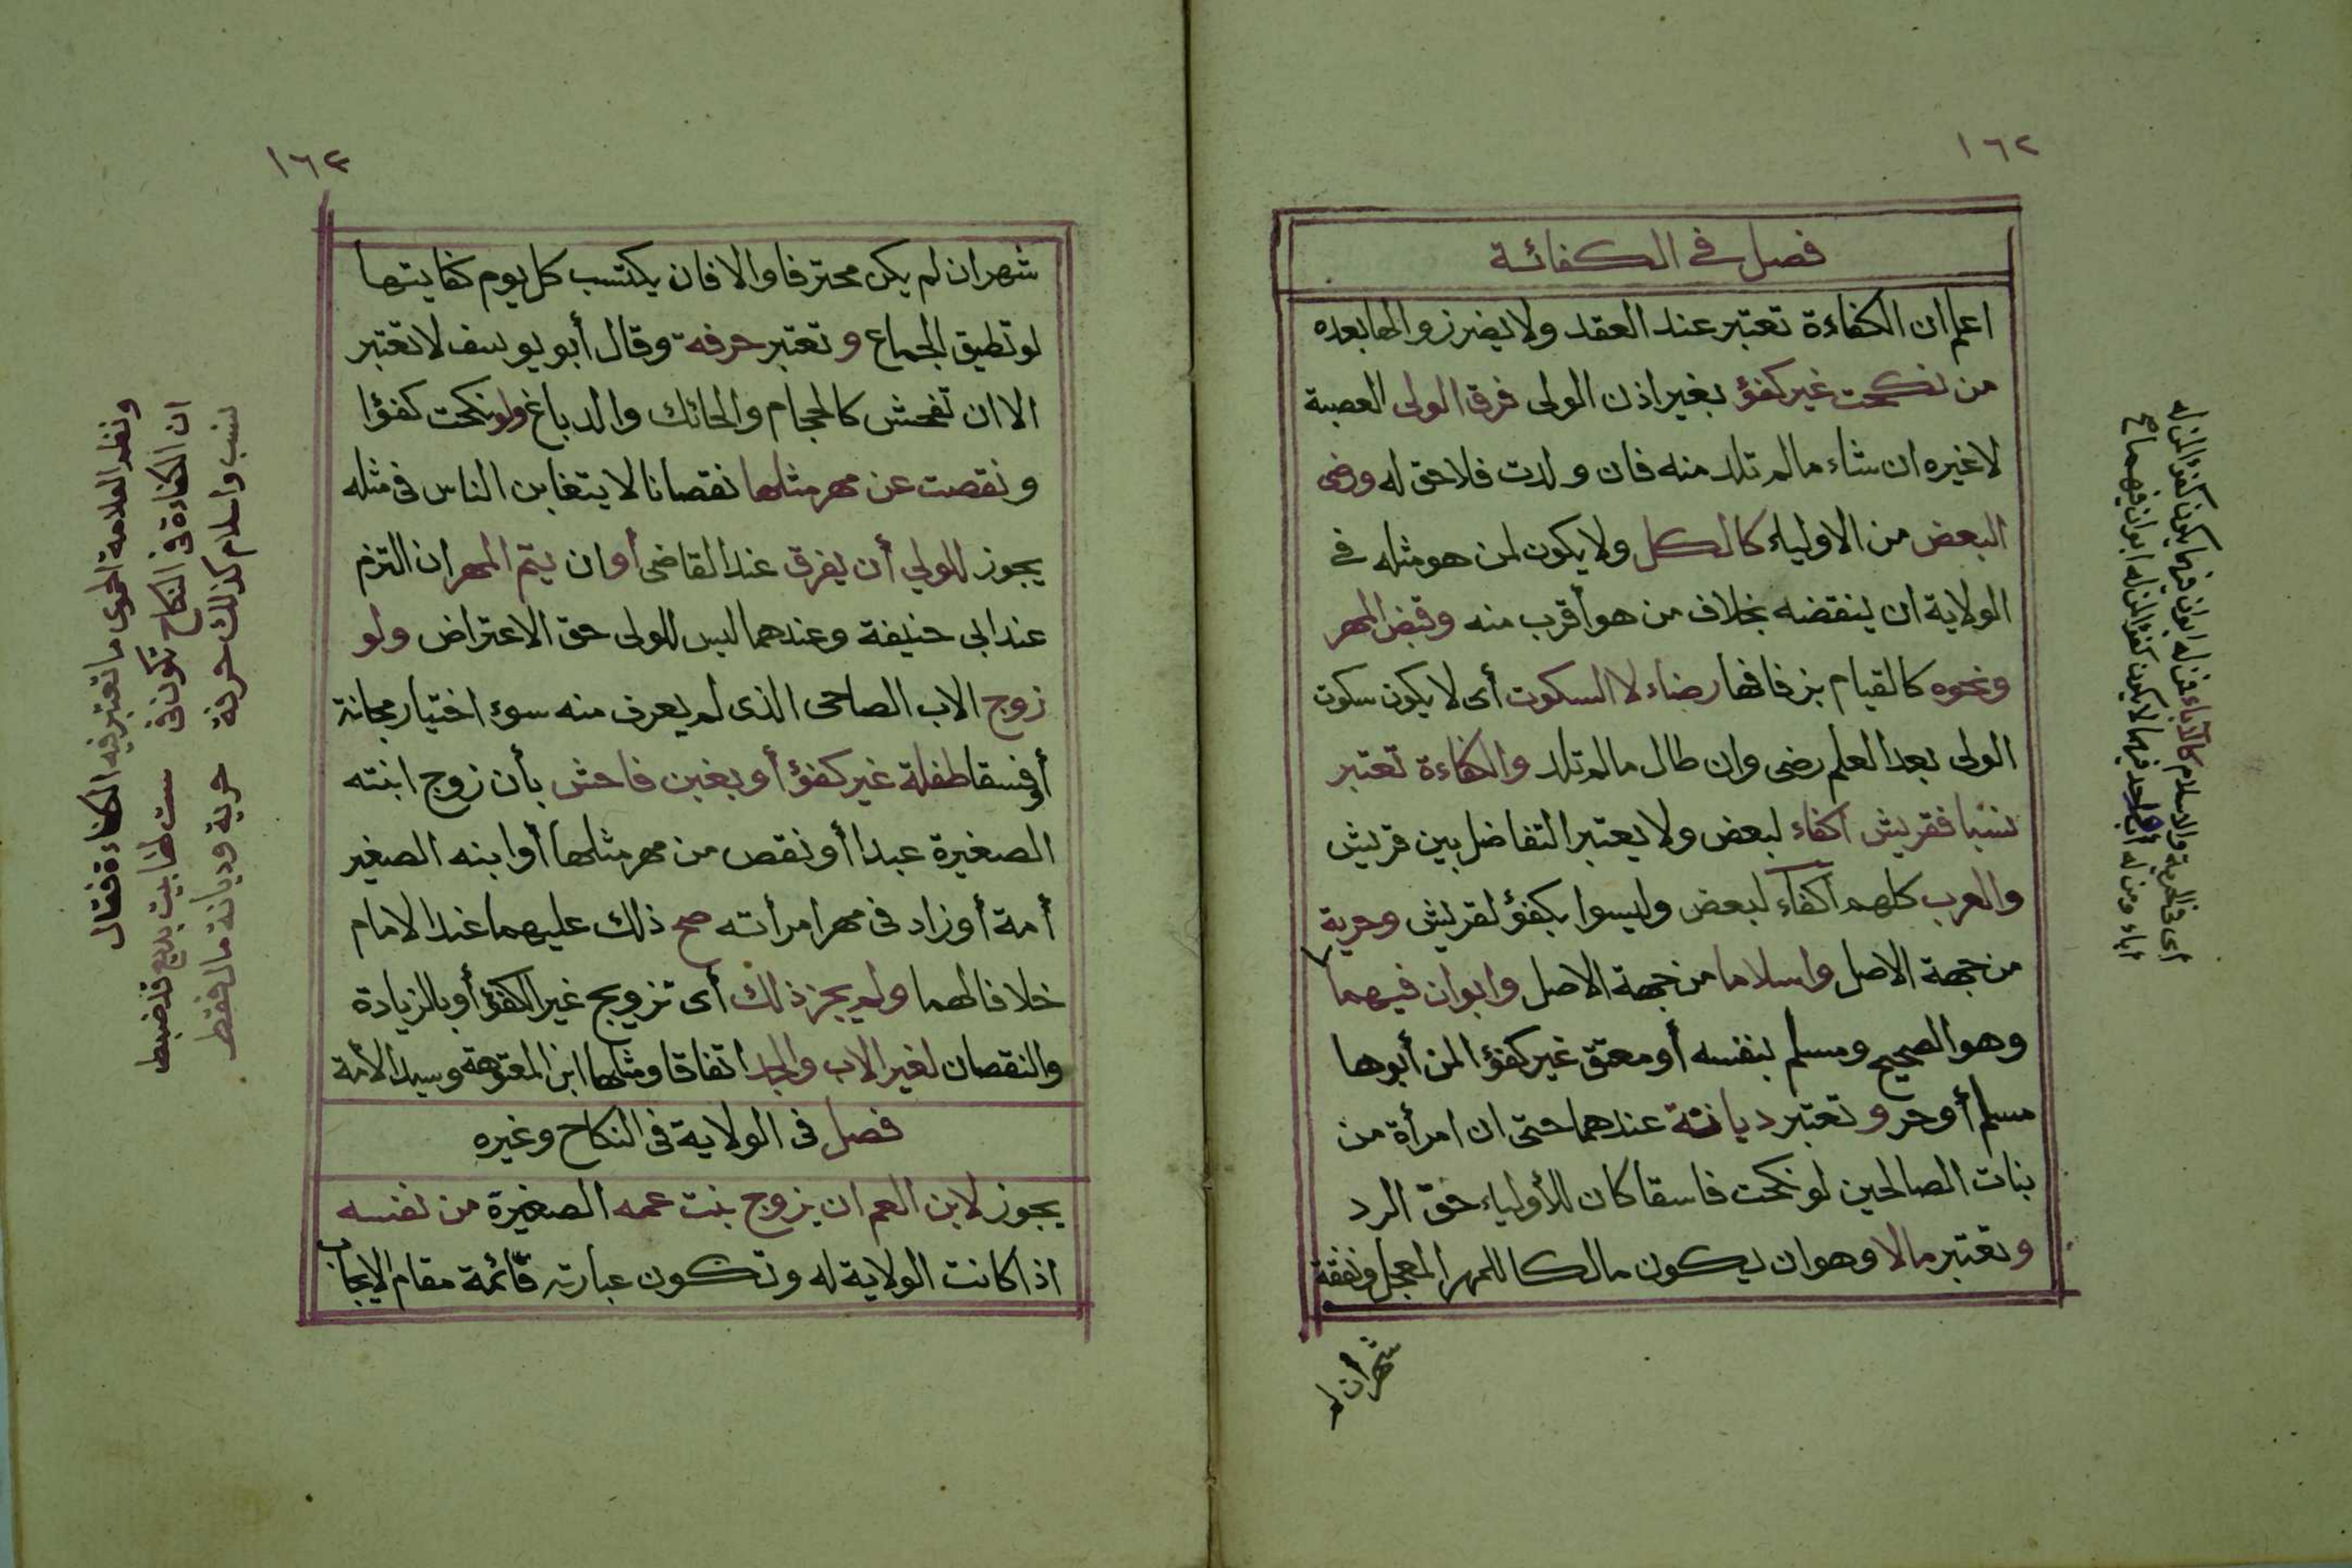 ١٦٢
فصل في الكفائة
اعلم ان الكفاءة تعتبر عند العقد ولا يضر زوالها بعده
من نكحت غير كفؤ بغير اذن الولى فرق الولى العصبة
لا غيره ان شاء ما لم تلد منه فان ولدت فلا حق له ورضى
البعض من الاولياء كالكل ولا يكون لمن هو مثله في
الولاية ان ينقضه بخلاف من هو أقرب منه وقبض المهر
ونحوه كالقيام بزفافها رضاء لا السكوت أى لا يكون سكوت
الولى بعد العلم رضى وان طال ما لم تلد والكفاءة تعتبر
نسبا فقريش اكفاء لبعض ولا يعتبر التفاضل بين قريش
والعرب كلهم اكفاء لبعض وليسوا بكفؤ لقريش وحرية
من جهة الاصل واسلاما من جهة الاصل وابوان فيهما
وهو الصحيح ومسلم بنفسه أو معتق غير كفؤ لمن أبوها
مسلم أو حر وتعتبر ديانة عندهما حتى ان امرأة من
بنات الصالحين لو نكحت فاسقا كان للأولياء حق الرد
وتعتبر مالا وهو ان يكون مالكا للمهر المعجل ونفقة
شهر ان لم
أى في الحرية والاسلام كالآباء فمن له ابوان فيهما يكون كفؤ المن له
اباء ومن له أب واحد فيهما لا يكون كفؤ المن له ابوان فيهما اح
١٦٣
شهر ان لم يكن محترفا والا فان يكتسب كل يوم كفايتها
لو تطيق الجماع وتعتبر حرفة وقال أبو يوسف لا تعتبر
الا ان تفحش كالحجام والحائك والدباغ ولو نكحت كفؤا
ونقصت عن مهر مثلها نقصانا لا يتغابن الناس فى مثله
يجوز للولي أن يفرق عند القاضى أو ان يتم المهر ان التزم
عند ابى حنيفة وعندهما ليس للولى حق الاعتراض ولو
زوج الاب الصاحى الذى لم يعرف منه سوء اختيار مجانة
أو فسقا طفلة غير كفؤ أو بغبن فاحش بأن زوج ابنته
الصغيرة عبدا أو نقص من مهر مثلها أو ابنه الصغير
أمة أو زاد فى مهر امرأته صح ذلك عليهما عند الامام
خلافا لهما ولم يجز ذلك أى تزويج غير الكفؤ أو بالزيادة
والنقصان لغير الاب والجد اتفاقا ومثلهما ابن المعتوهة وسيد الأمة
فصل فى الولاية فى النكاح وغيره
يجوز لابن العم ان يزوج بنت عمه الصغيرة من نفسه
اذا كانت الولاية له وتكون عبارته قائمة مقام الايجاب
ونظم العلامة الحموى ما تعتبر فيه الكفاءة فقال
ان الكفاءة فى النكاح تكون فى ست لها بيت بديع قد ضبط
نسب واسلام كذلك حرفة حرية وديانة مال فقط